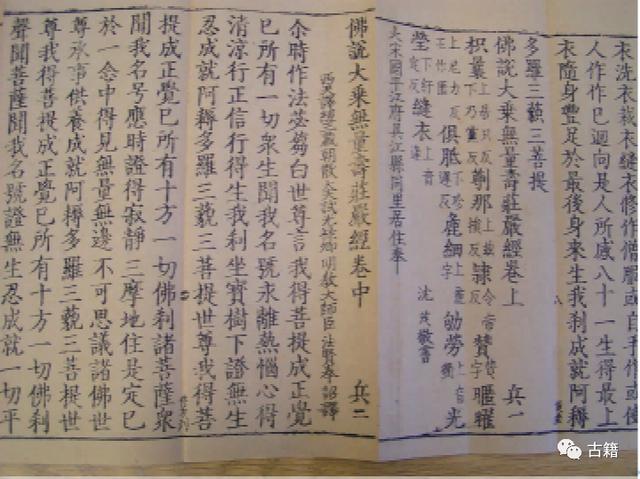 衣洗衣裁衣縫衣修作僧服或自手作或使
人作作已迴向是人所感八十一生得最上
衣隨身豐足於最後身來生我刹成就阿耨
多羅三藐三菩提
佛說大乘無量壽莊嚴經卷上 兵一
縫衣
大宋國平江府吳江縣 居住奉
佛說大乘無量壽莊嚴經卷中 兵二
西天譯經三藏朝散大夫試光祿卿明教大師臣法賢奉 詔譯
尒時作法苾芻白世尊言我得菩提成正覺
已所有一切眾生聞我名號永離熱惱心得
清凉行正信行得生我刹坐寶樹下證無生
忍成就阿耨多羅三藐三菩提世尊我得菩
提成正覺已所有十方一切佛刹諸菩薩眾
聞我名号應時證得寂靜三摩地住是定已
於一念中得見無量無邊不可思議諸佛世
尊承事供養成就阿耨多羅三藐三菩提世
尊我得菩提成正覺已所有十方一切佛刹
聲聞菩薩聞我名號證無生忍成就一切平
古籍